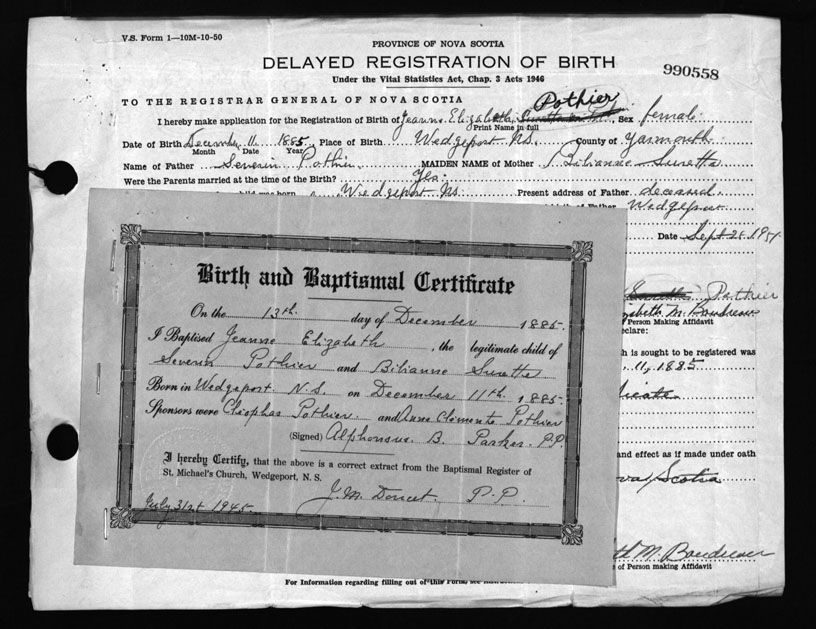 V.S. Form 1—10M-10-50
PROVINCE OF NOVA SCOTIA
DELAYED REGISTRATION OF BIRTH
990558
Under the Vital Statistics Act, Chap. 3 Acts 1946
TO THE REGISTRAR GENERAL OF NOVA SCOTIA
Pothier
I hereby make application for the Registration of Birth of Jeanne Elizabeth Sex female
Print Name in full
Date of Birth December 11 1885 Place of Birth Wedgeport N.S. County of Yarmouth
Month Date Year
Name of Father Severin Pothier MAIDEN NAME of Mother Bilianne Surette
Were the Parents married at the time of the Birth? Yes
born Wedgeport N.S. Present address of Father deceased
Father Wedgeport
Date Sept 25, 1951
Pothier
M. Boudreau
Person Making Affidavit
declare:
is sought to be registered was
11, 1885
and effect as if made under oath
Scotia
M. Boudreau
of Person making Affidavit
For Information regarding filling out of this Form, see
Birth and Baptismal Certificate
On the 13th day of December 1885.
I Baptised Jeanne Elizabeth, the legitimate child of
Severin Pothier and Bilianne Surette
Born in Wedgeport N.S. on December 11th 1885.
Sponsors were Cleophas Pothier and Anne Clemente Pothier
(Signed) Alphonsus B. Parker. P.P.
I hereby Certify, that the above is a correct extract from the Baptismal Register of
St. Michael's Church, Wedgeport, N. S.
J. M. Doucet, P.P.
July 31st 1945.